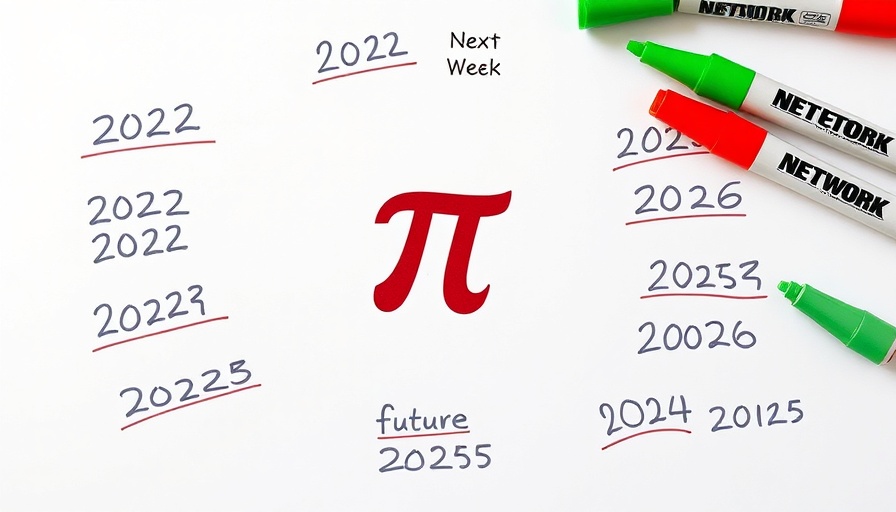 2022
Next
Week
2022
2022
2022
20225
2026
20026
2024 20125
π
future
20255
NETWORK
NETETORK
NETWORK